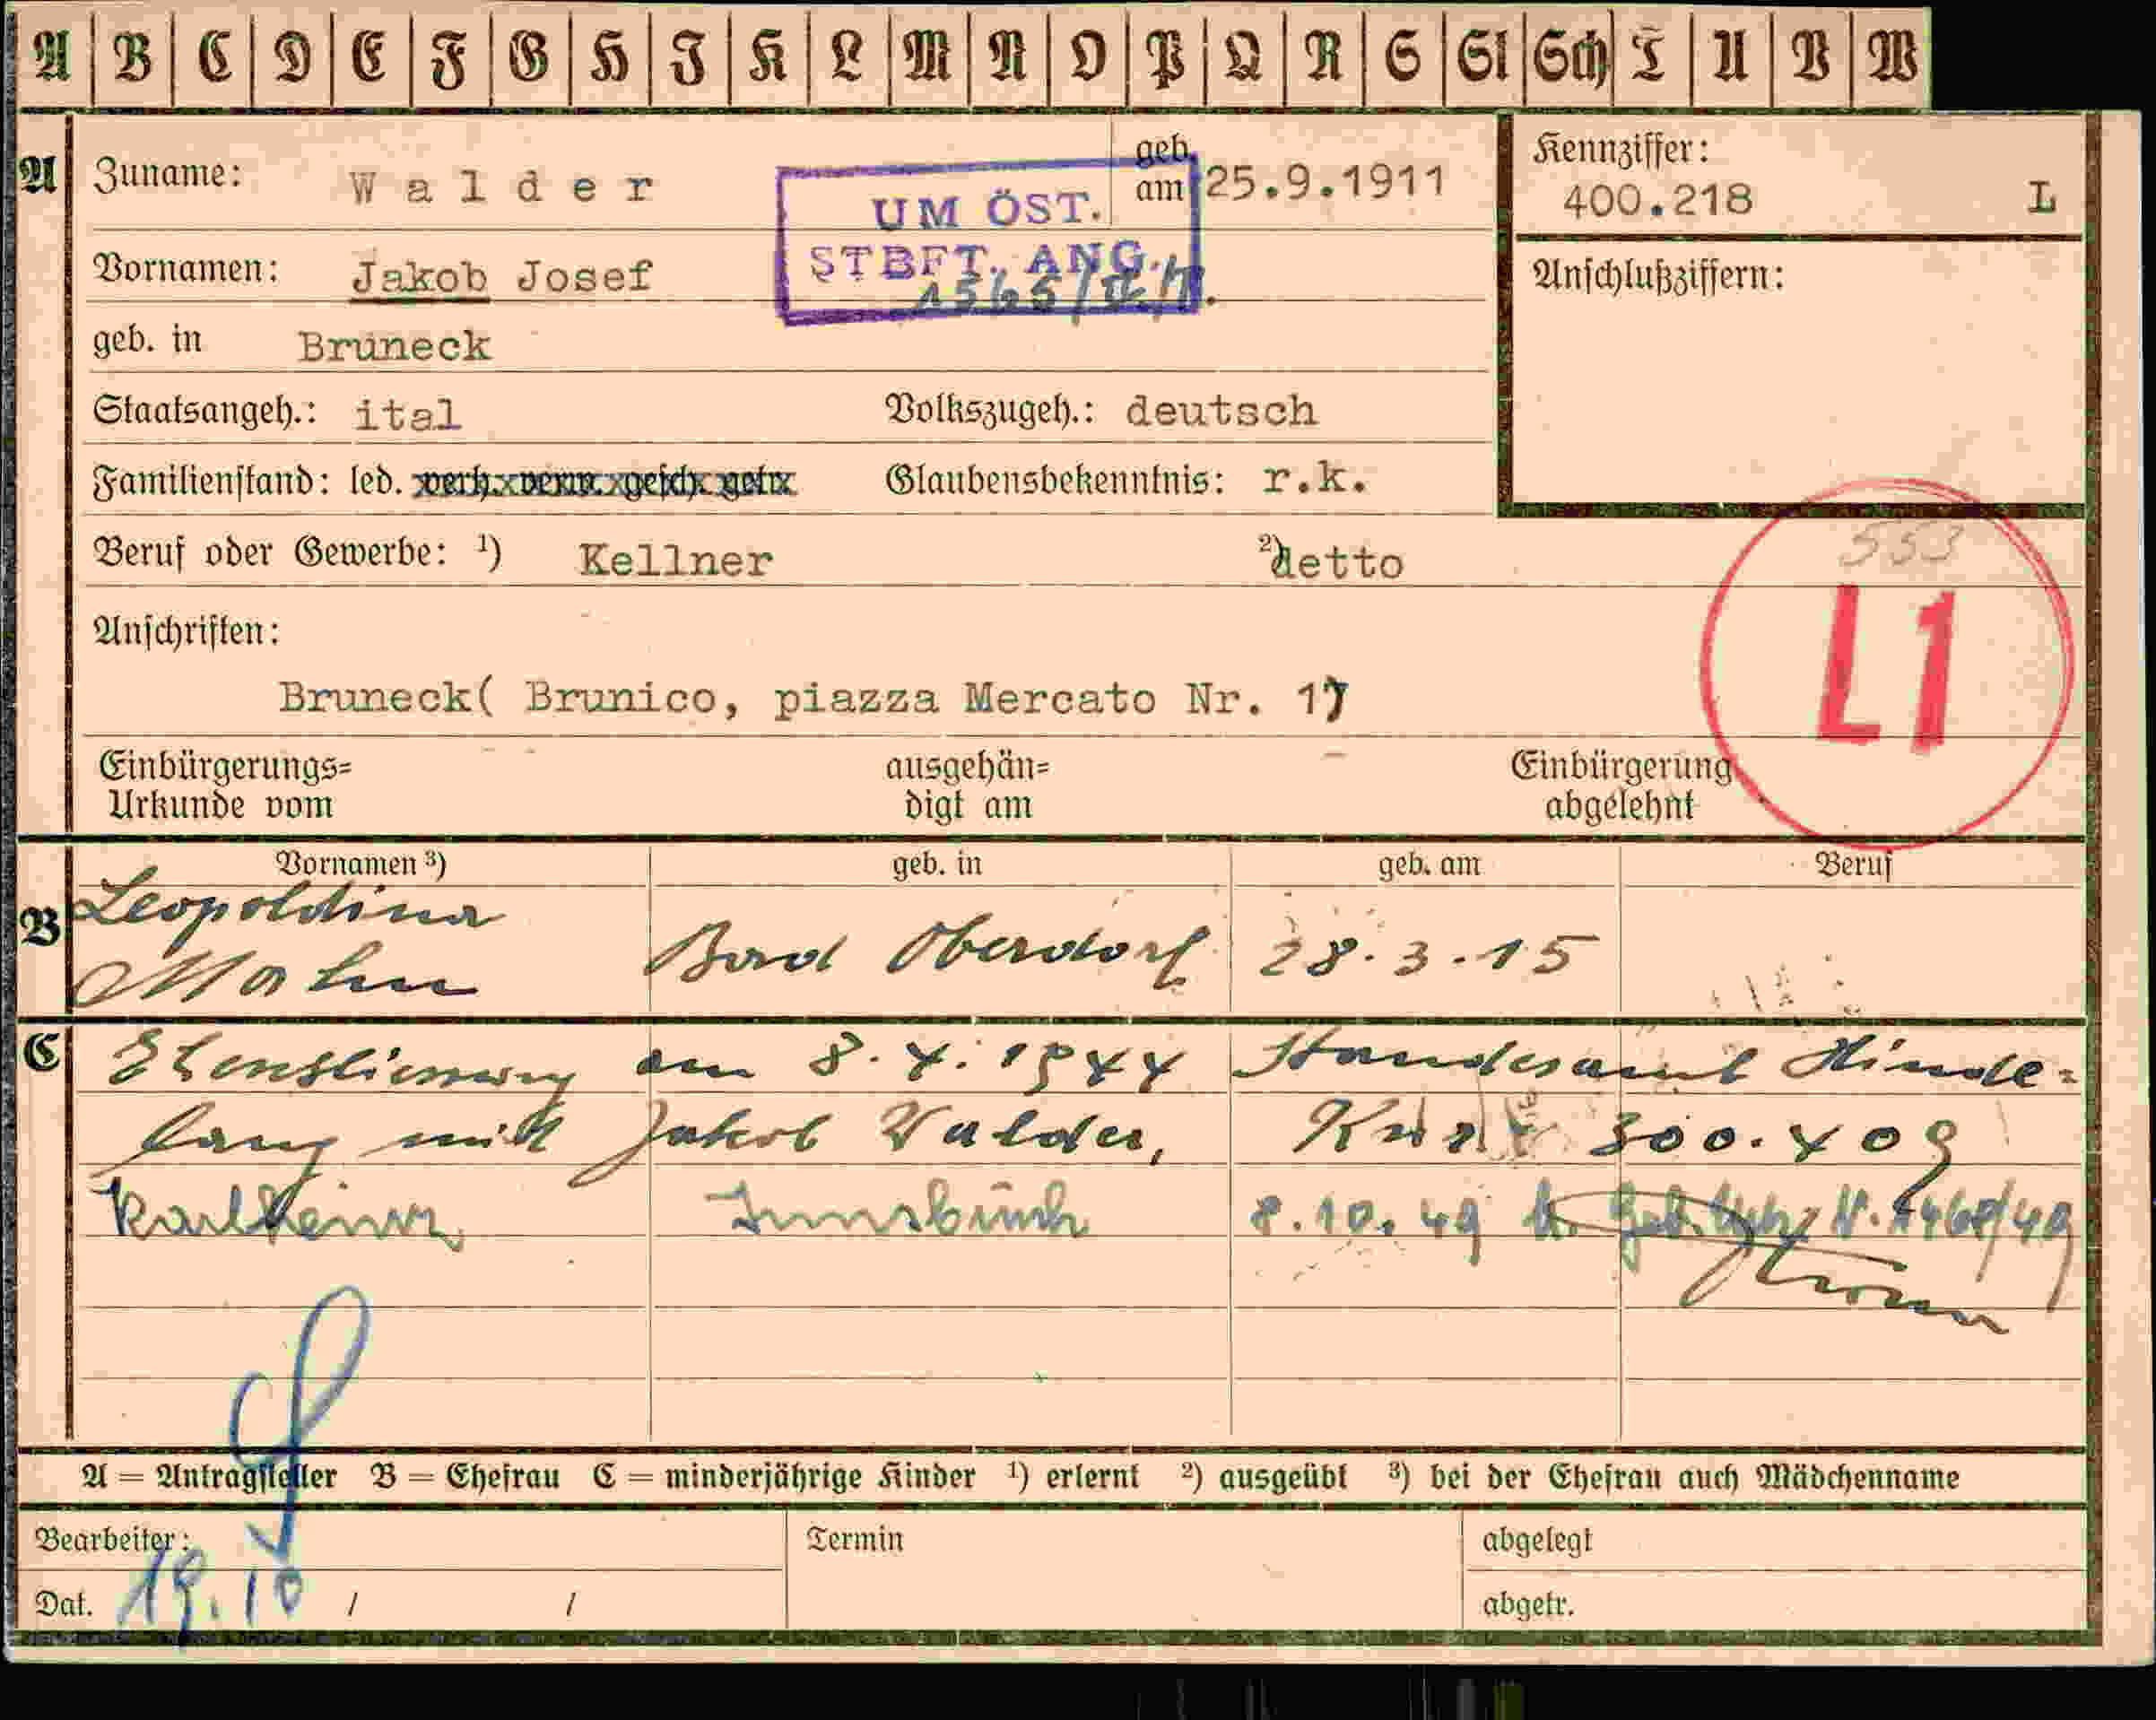 A B C D E F G H J K L M N O P Q R S St Sch T U V W
A Zuname: Walder geb. am 25.9.1911
Kennziffer:
400.218 L
UM ÖST.
STBFT. ANG.
Vornamen: Jakob Josef
Anschlußziffern:
geb. in Bruneck
Staatsangeh.: ital Volkszugeh.: deutsch
Familienstand: led. verh. verw. gesch. getr. Glaubensbekenntnis: r.k.
553
Beruf oder Gewerbe: ¹) Kellner ²) detto
L1
Anschriften:
Bruneck( Brunico, piazza Mercato Nr. 17
Einbürgerungs= ausgehän= Einbürgerung
Urkunde vom digt am abgelehnt
Vornamen ³) geb. in geb. am Beruf
B Leopoldina
Mahn Bad Oberdorf 28.3.15
C Eheschliessung am 8.4.1944 Standesamt Hinde=
lang mit Jakob Walder, 300.409
Karlheinz Innsbruck 8.10.49
A = Antragsteller B = Ehefrau C = minderjährige Kinder ¹) erlernt ²) ausgeübt ³) bei der Ehefrau auch Mädchenname
Bearbeiter: Termin abgelegt
Dat. 19.10 / / abgetr.